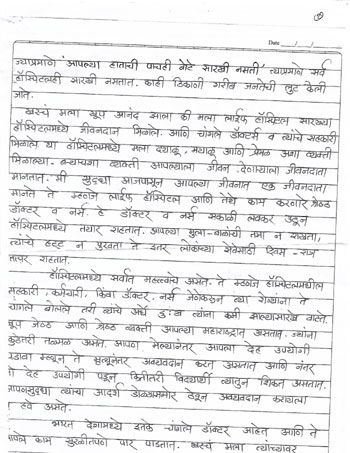 Date
ज्याप्रमाणे 'आपल्या हाताची पाचही बोटे सारखी नसती' त्याप्रमाणे सर्व
हॉस्पिटलही सारखी नसतात. काही ठिकाणी गरीब जनतेची लुट केली
जाते.
खरचं मला खूप आनंद झाला की मला लाईफ हॉस्पिटल सारख्या
हॉस्पिटलमध्ये जीवनदान मिळाले. आणि चांगले डॉक्टर्स व त्यांचे सहकारी
मिळाले या हॉस्पिटलमध्ये मला दयाळू, मयाळू आणि प्रेमळ अशा व्यक्ती
मिळाल्या. बऱ्याचशा व्यक्ती आपल्याला जीवन देणाऱ्याला जीवनदाता
मानतात. मी सुद्धा आजपासून आपल्या जीवनात एक जीवनदाता
मानते ते म्हणजे लाईफ हॉस्पिटल आणि तेथे काम करणारे
डॉक्टर व नर्स हे डॉक्टर व नर्स सकाळी लवकर उठून
हॉस्पिटलमध्ये तयार राहतात. आपल्या मुला-बाळांची तमा न राखता,
त्यांचे हट्ट न पुरवता ते इतर लोकांच्या सेवेसाठी दिवस - रात्र
तत्पर राहतात.
हॉस्पिटलमध्ये सर्वात महत्त्वाचे असते. ते म्हणजे हॉस्पिटलमधील
सहकारी, कर्मचारी, किंवा डॉक्टर. नर्स जेणेकरून त्या रोग्याना ते
चांगले बोलले तरी त्याचे अर्धे दुःख त्यांना कमी झाल्यासारखे वाटते.
खूप जेष्ठ आणि श्रेष्ठ व्यक्ती आपल्या महाराष्ट्रात असतात. ज्यांना
तळमळ असते. आपण मेल्यानंतर आपला देह उपयोगी
पडावा म्हणून ते मृत्यूनंतर अवयवदान करत असतात आणि नंतर
तो देह उपयोगी पडून कितीतरी विद्यार्थी त्यातून शिकत असतात.
आपणसुद्धा त्यांचा आदर्श डोळ्यासमोर ठेवून अवयवदान करायला
हवे असते.
भारत देशामध्ये इतके चांगले डॉक्टर आहेत आणि ते
आपले काम सुरळीतपणे पार पाडतात. खरचं मला त्यांच्यावर